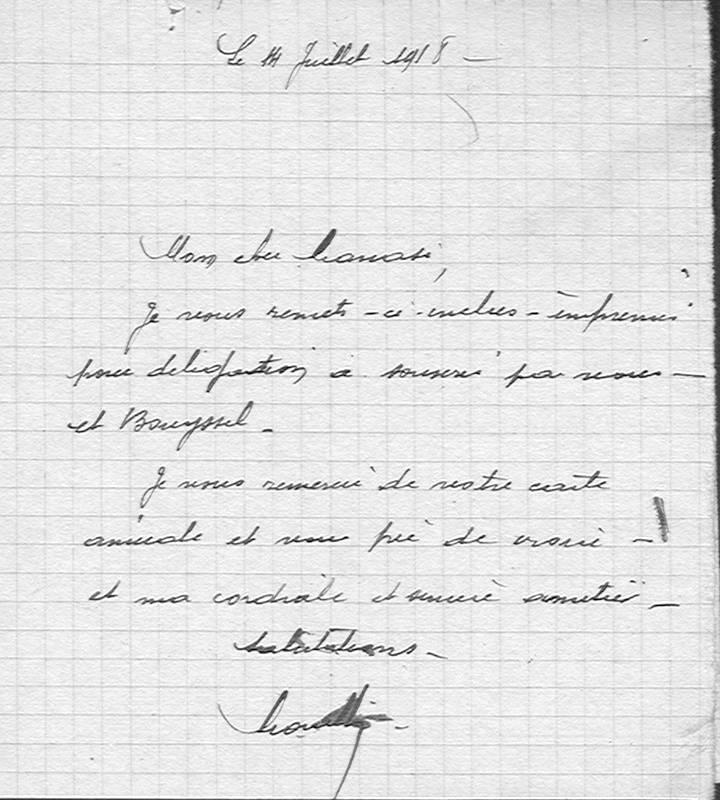 Le 14 Juillet 1918 —
Mon cher
Je vous remets - ci-inclus - imprimé
pour délégation à par vous —
et Bouyssel —
Je vous remercie de votre carte
amicale et vous prie de croire —
et ma cordiale et sincère amitié —
salutations —